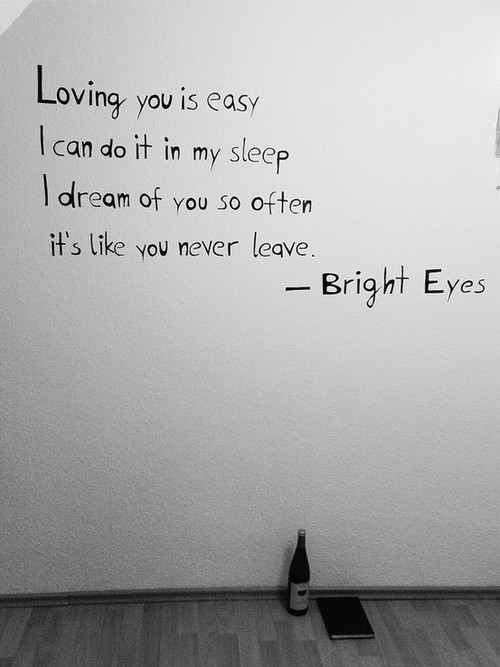 Loving you is easy
I can do it in my sleep
I dream of you so often
it's like you never leave.
— Bright Eyes